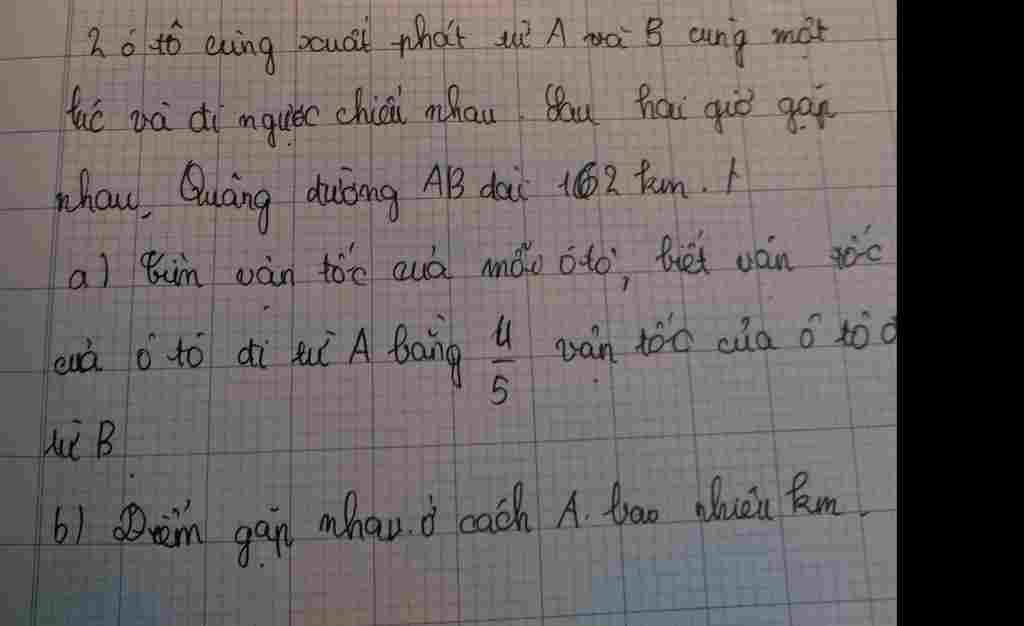 2 ô tô cùng xuất phát từ A và B cùng một
lúc và đi ngược chiều nhau. Sau hai giờ gặp
nhau, Quãng đường AB dài 162 km.
a) Tìm vận tốc của mỗi ô tô, biết vận tốc
của ô tô đi từ A bằng 4/5 vận tốc của ô tô đ
từ B
b) Điểm gặp nhau ở cách A bao nhiêu km.